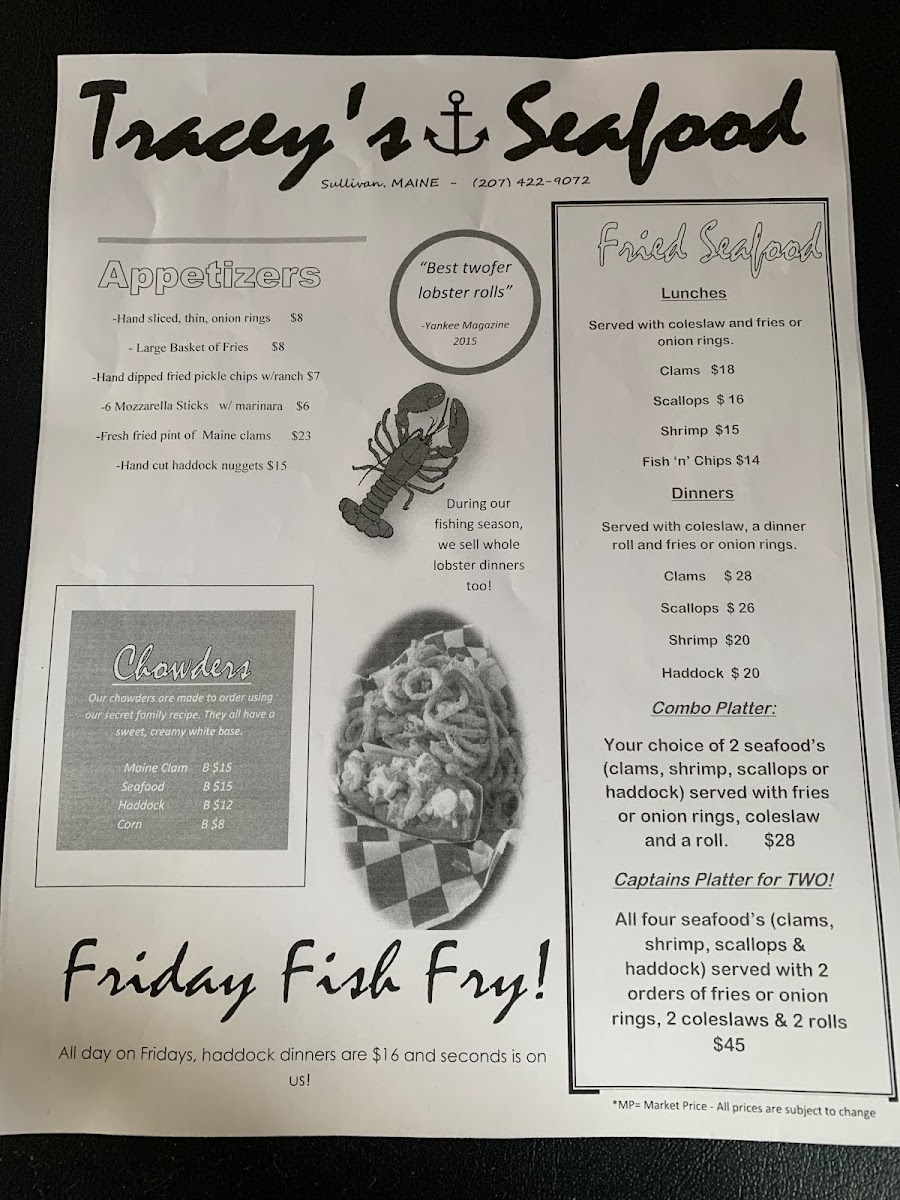 Tracey's Seafood
Sullivan. MAINE - (207) 422-9072
Appetizers
-Hand sliced, thin, onion rings $8
- Large Basket of Fries $8
-Hand dipped fried pickle chips w/ranch $7
-6 Mozzarella Sticks w/ marinara $6
-Fresh fried pint of Maine clams $23
-Hand cut haddock nuggets $15
"Best twofer
lobster rolls"
-Yankee Magazine
2015
During our
fishing season,
we sell whole
lobster dinners
too!
Chowders
Our chowders are made to order using
our secret family recipe. They all have a
sweet, creamy white base.
Maine Clam B $15
Seafood B $15
Haddock B $12
Corn B $8
Friday Fish Fry!
All day on Fridays, haddock dinners are $16 and seconds is on
us!
Fried Seafood
Lunches
Served with coleslaw and fries or
onion rings.
Clams $18
Scallops $ 16
Shrimp $15
Fish 'n' Chips $14
Dinners
Served with coleslaw, a dinner
roll and fries or onion rings.
Clams $ 28
Scallops $ 26
Shrimp $20
Haddock $ 20
Combo Platter:
Your choice of 2 seafood's
(clams, shrimp, scallops or
haddock) served with fries
or onion rings, coleslaw
and a roll. $28
Captains Platter for TWO!
All four seafood's (clams,
shrimp, scallops &
haddock) served with 2
orders of fries or onion
rings, 2 coleslaws & 2 rolls
$45
*MP= Market Price - All prices are subject to change